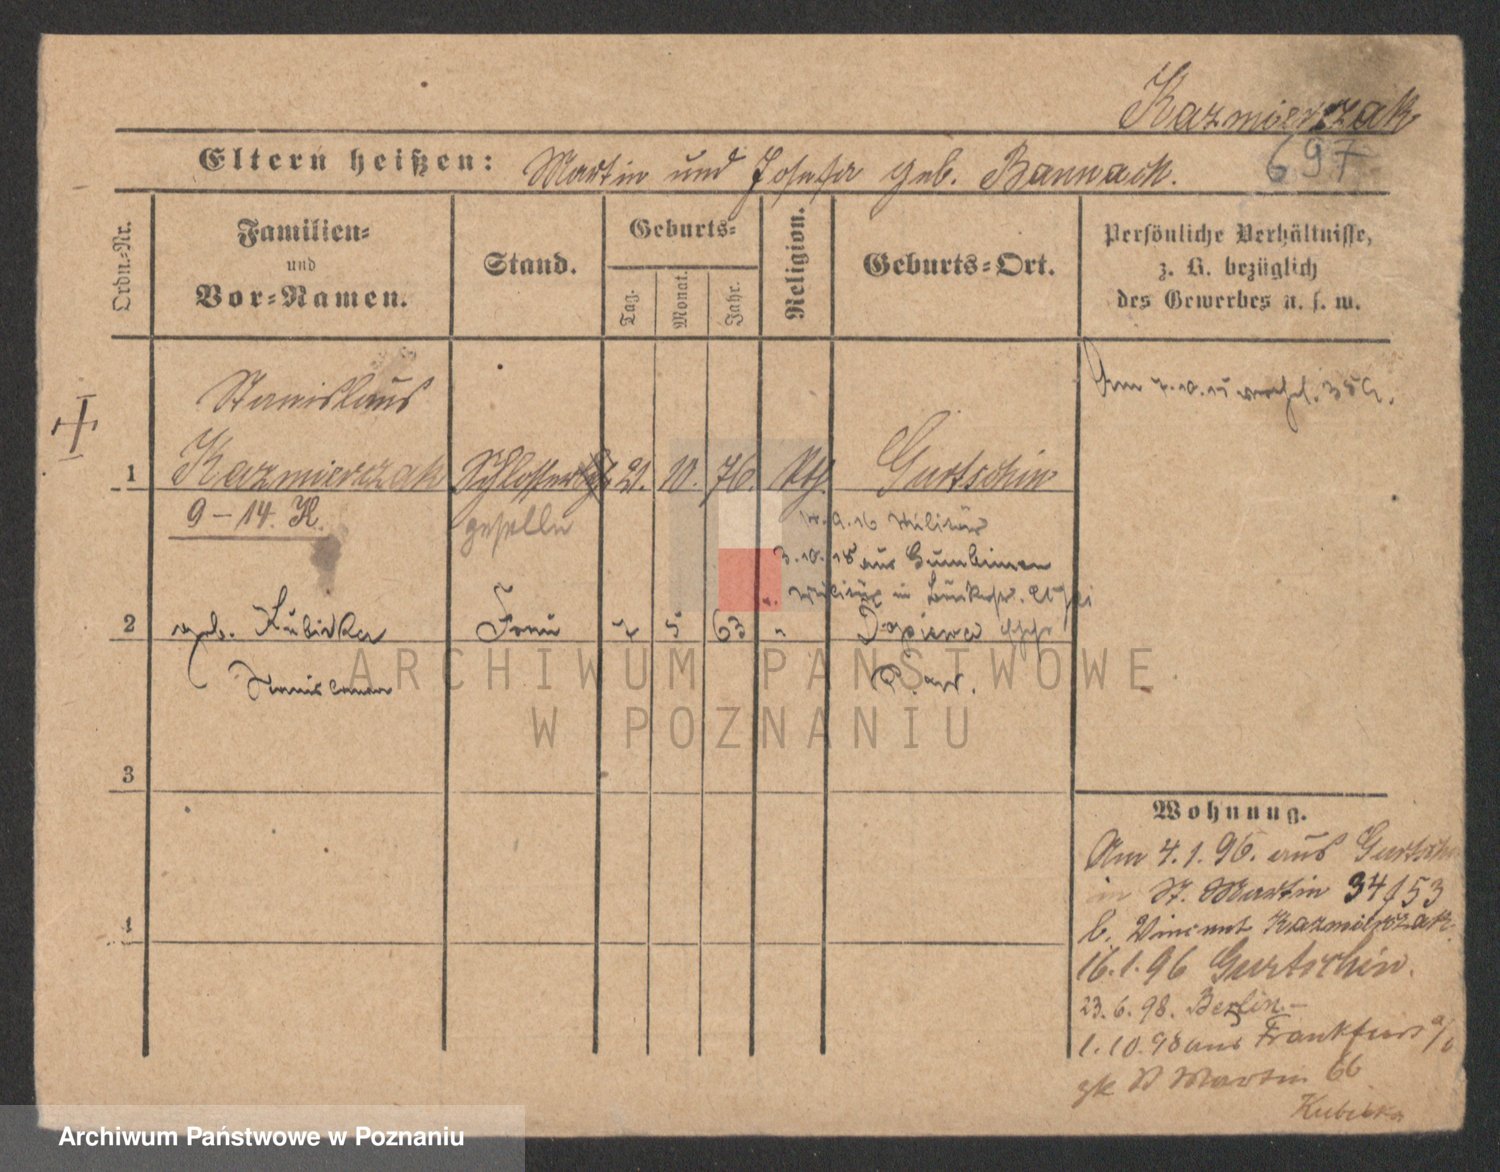 Kazmierczak
697
Eltern heißen: Martin und Josefa geb. Bannack.
Ordn.-Nr.
Familien-
und
Vor-Namen.
Stand.
Geburts-
Tag.
Monat.
Jahr.
Religion.
Geburts-Ort.
Persönliche Verhältnisse,
z. B. bezüglich
des Gewerbes u. s. w.
Am 7.10.15
Stanislaus
1 Kazmierczak Schlosser 21. 10. 76. Kth. Gurtschin
9-14. K.
geselle
9.16 Militär
3.10.18 aus Gumbinnen
Militär in
2 geb. Kubicka Frau 7 5 63 "
Stanislawa
ARCHIWUM PAŃSTWOWE
W POZNANIU
3
4
Wohnung.
Am 4.1.96. aus Gurtschin
in St. Martin 34/53
b. Vincent Kazmierczak
16.1.96 Gurtschin.
23.6.98. Berlin.-
1.10.98 aus Frankfurt a/O
zk St Martin 66
Kubicka
Archiwum Państwowe w Poznaniu